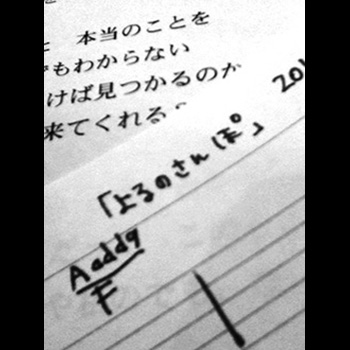 本当のことを
もわからない
けば見つかるのか
来てくれる
「よるのさんぽ」 201
Aadd9
F